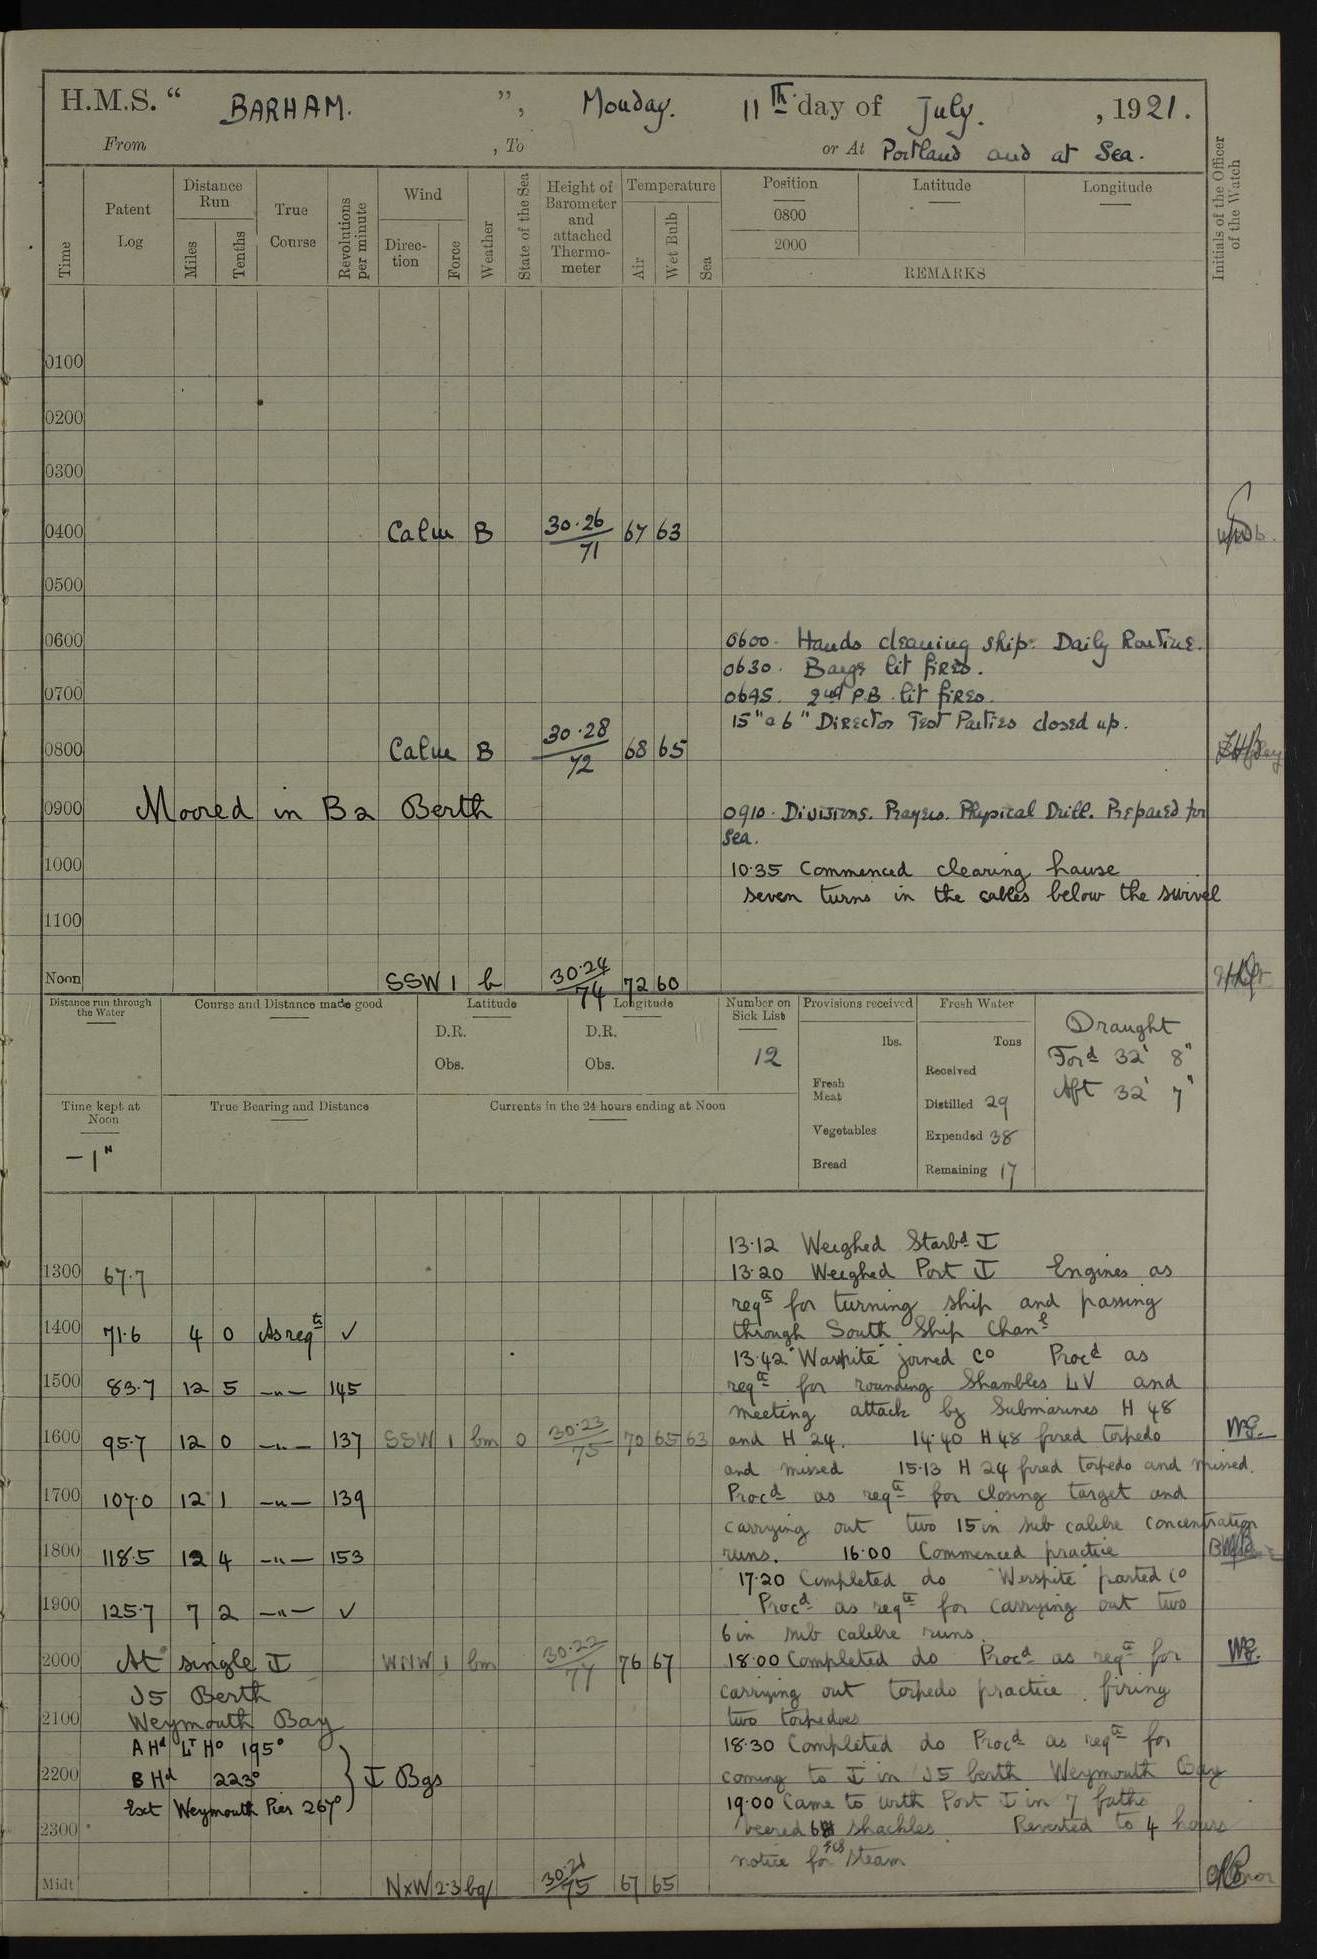 H.M.S. “ BARHAM. ”, Monday. 11th day of July. , 1921.
From , To or At Portland and at Sea.
Time
Patent Log
Distance Run
Miles
Tenths
True Course
Revolutions per minute
Wind
Direction
Force
Weather
State of the Sea
Height of Barometer and attached Thermometer
Temperature
Air
Wet Bulb
Sea
Position
0800
2000
Latitude
Longitude
REMARKS
Initials of the Officer of the Watch
0100
0200
0300
0400 Calm B 30·26/71 67 63
0500
0600 0600. Hands cleaning ship. Daily Routine.
0630. Barge lit fires.
0700 0645. 2nd P.B. lit fires.
15" & 6" Director Test Parties closed up.
0800 Calm B 30·28/72 68 65
0900 Moored in B2 Berth 0910. Divisions. Prayers. Physical Drill. Prepared for
Sea.
1000 10·35 Commenced clearing hause
seven turns in the cables below the swivel
1100
Noon SSW 1 b 30·24/74 72 60
Distance run through the Water
Course and Distance made good
Latitude
D.R.
Obs.
Longitude
D.R.
Obs.
Number on Sick List
12
Provisions received
lbs.
Fresh Meat
Vegetables
Bread
Fresh Water
Tons
Received
Distilled 29
Expended 38
Remaining 17
Draught
Ford 32' 8"
Aft 32' 7"
Time kept at Noon
-1H
True Bearing and Distance
Currents in the 24 hours ending at Noon
13·12 Weighed Starbd
1300 67·7 13·20 Weighed Port Engines as
reqte for turning ship and passing
1400 71·6 4 0 As reqte ✓ through South Ship Chanl
13·42 "Warspite" joined Co Procd as
1500 83·7 12 5 —"— 145 reqte for rounding Shambles LV and
meeting attack by Submarines H 48
1600 95·7 12 0 —"— 137 SSW 1 bm 0 30·23/75 70 65 63 and H 24. 14·40 H48 fired torpedo
and missed 15·13 H 24 fired torpedo and missed.
1700 107·0 12 1 —"— 139 Procd as reqte for closing target and
carrying out two 15in sub calibre concentration
1800 118·5 12 4 —"— 153 runs. 16·00 Commenced practice
17·20 Completed do "Werspite" parted Co
1900 125·7 7 2 —"— ✓ Procd as reqte for carrying out two
6in sub calibre runs.
2000 At single WNW 1 bm 30·22/77 76 67 18·00 Completed do Procd as reqte for
J5 Berth carrying out torpedo practice, firing
2100 Weymouth Bay two torpedoes
A Hd Lt Ho 195° 18·30 Completed do Procd as reqte for
2200 B Hd 223° Bgs coming to in J5 berth Weymouth Bay
Ext Weymouth Pier 267° 19·00 Came to with Port in 7 faths
2300 veered shackles Reverted to 4 hours
notice for steam
Midt NxW 2·3 bq 30·21/75 67 65